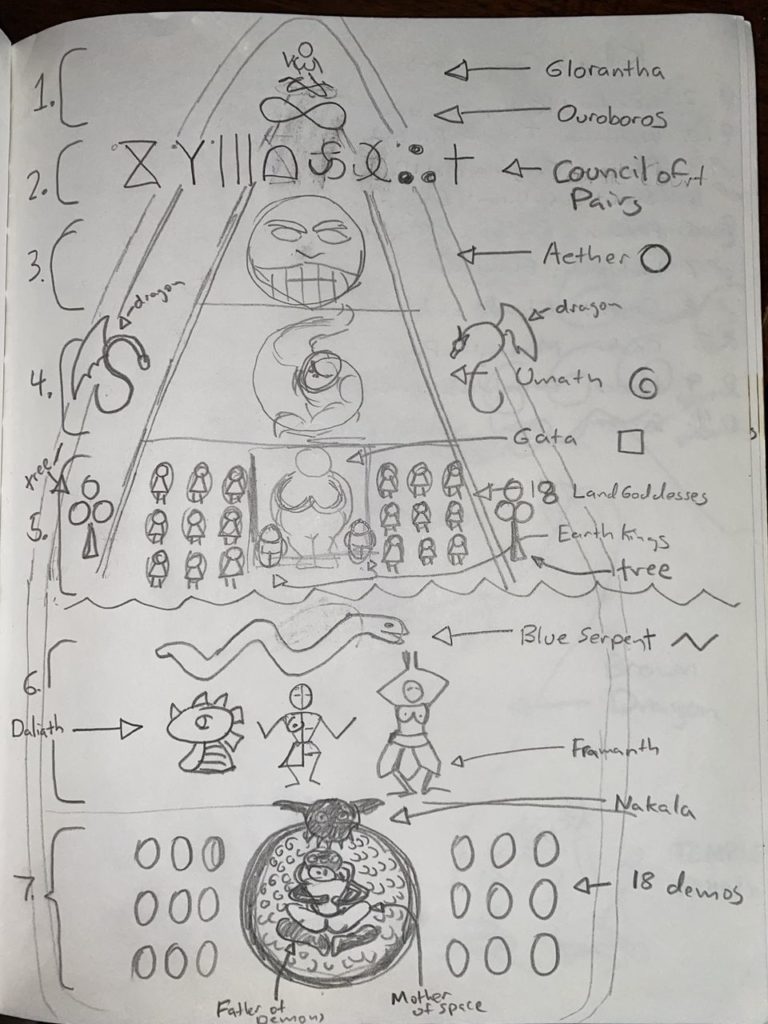 1.
Glorantha
Ouroboros
2.
Council of
Pairs
3.
Aether
dragon
dragon
4.
Umath
Gata
tree
5.
18 Land Goddesses
Earth Kings
tree
Blue Serpent
6.
Daliath
Framanth
Nakala
7.
18 demos
Father of
Demons
Mother
of space